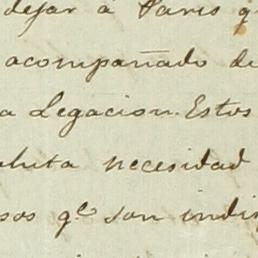 dejar á Paris q
acompañado de
a Legacion. Estos
necesidad
sos qe son indis